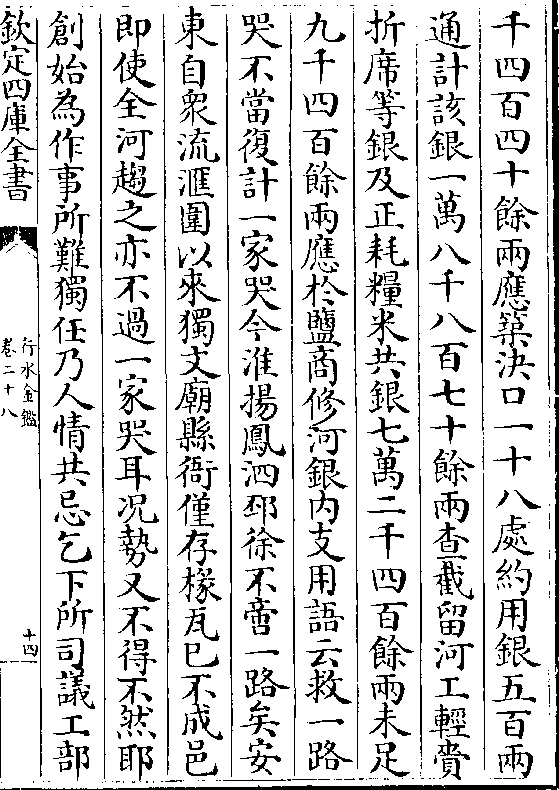 千四百四十餘兩應築決口一十八處約用銀五百兩
通計該銀一萬八千八百七十餘兩查截留河工輕賫
折席等銀及正耗糧米共銀七萬二千四百餘兩未足
九千四百餘兩應於鹽商修河銀內支用語云救一路
哭不當復計一家哭今淮揚鳳泗邳徐不啻一路矣安
東自衆流滙圍以來獨文廟縣衙僅存椽瓦已不成邑
即使全河趨之亦不過一家哭耳况勢又不得不然耶
創始為作事所難獨任乃人情共忌乞下所司議工部
欽定四庫全書
行水金鑑
卷二十八
十四